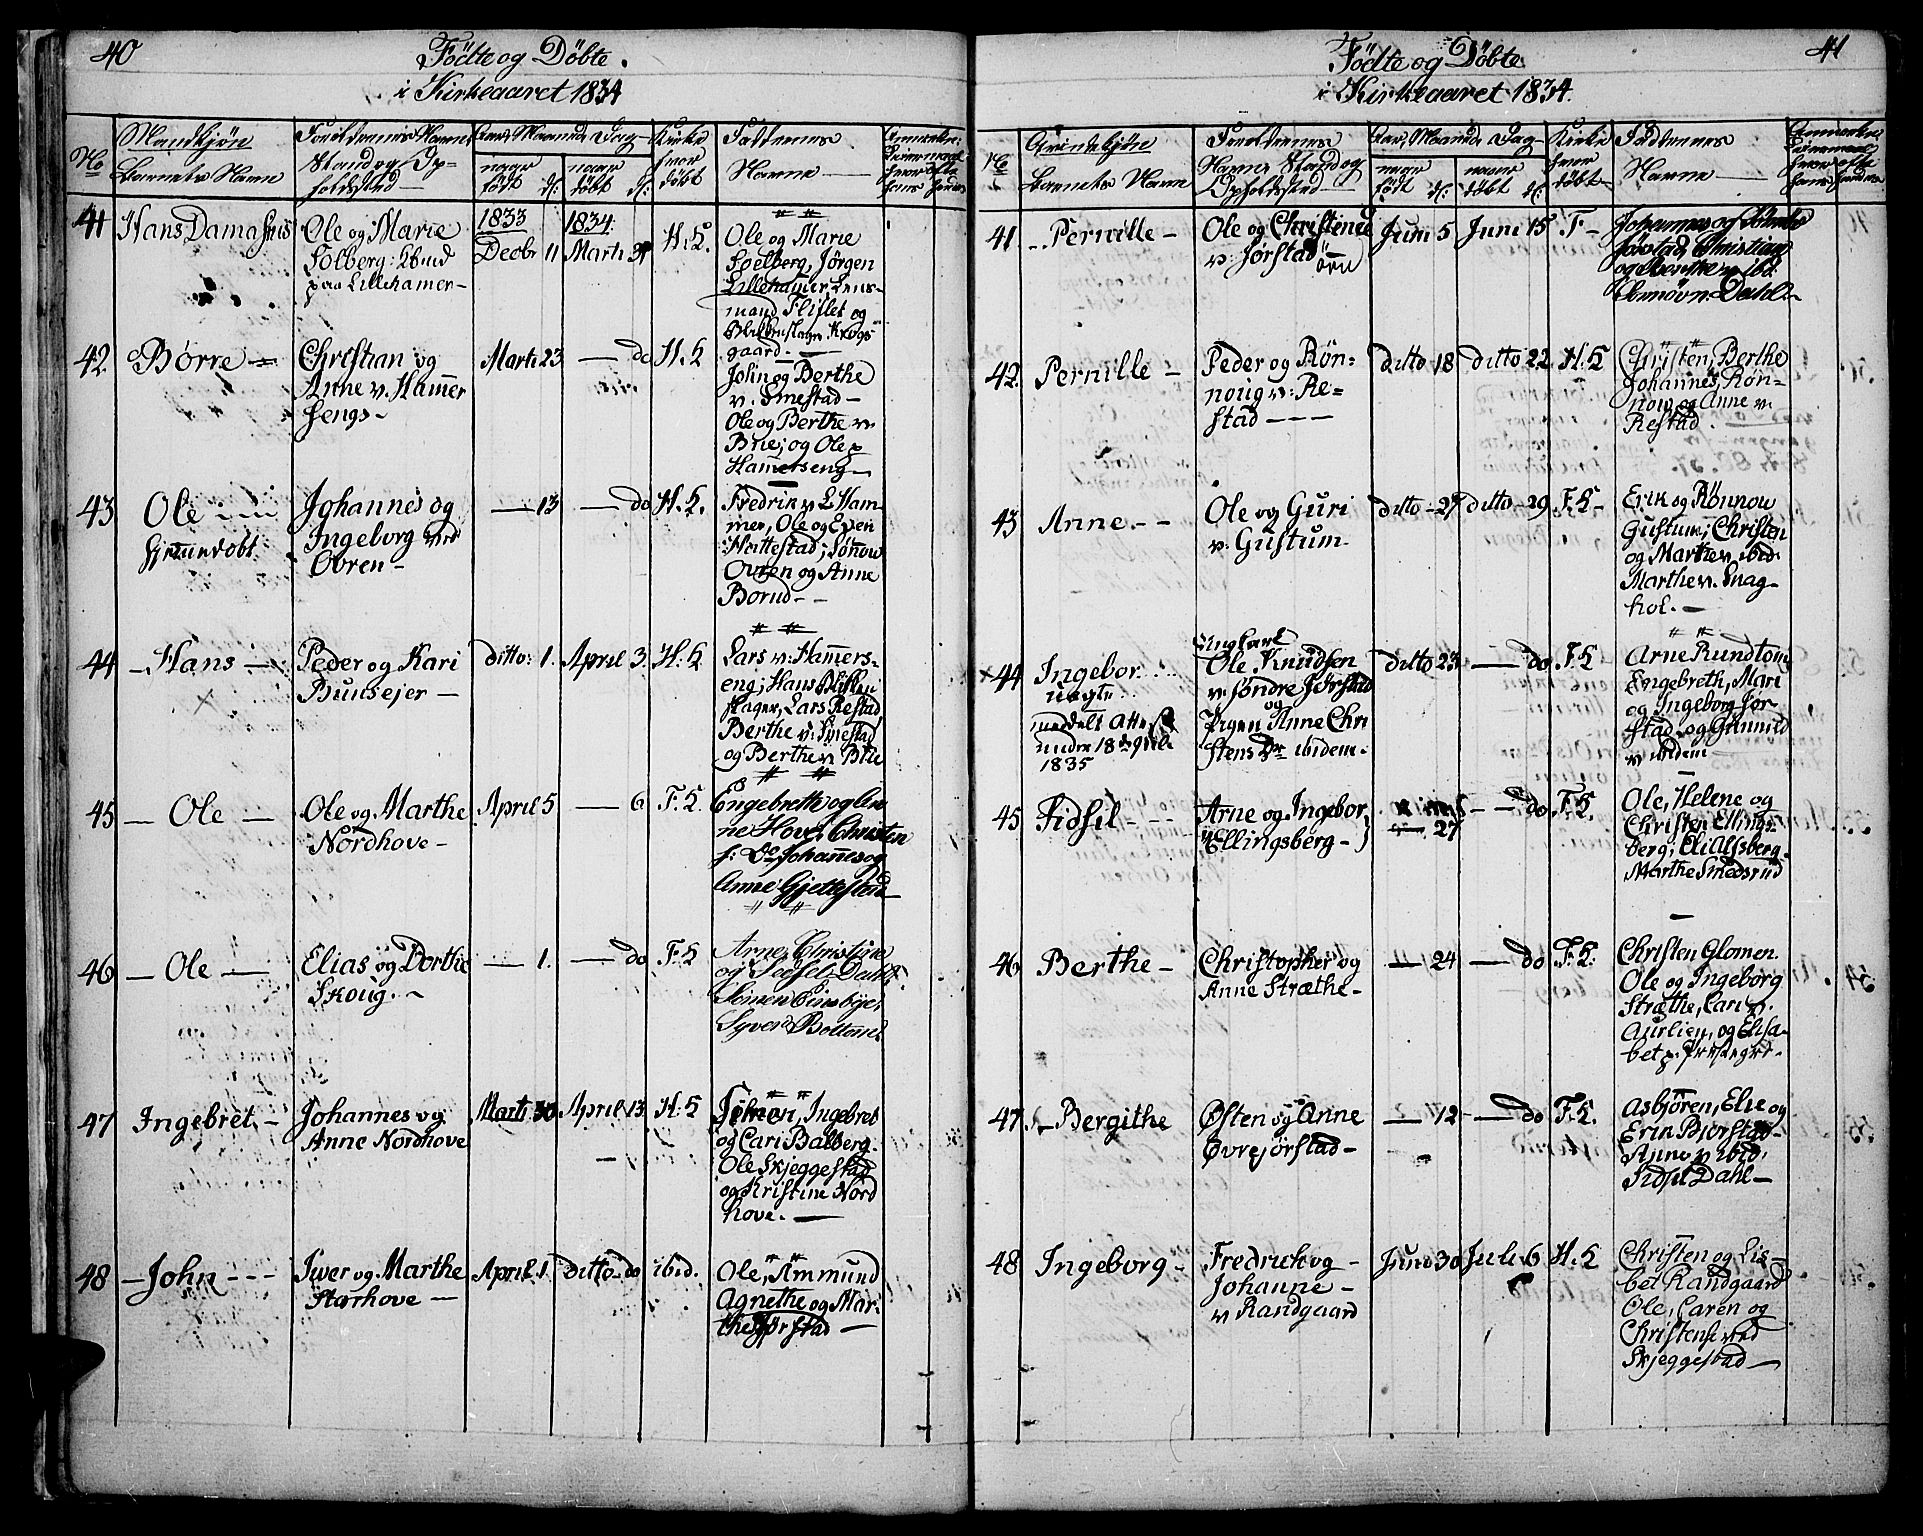 40
Födte og Döbte.
i Kirkeaaret 1834
No
Mandkjön
Barnets Navn
Foreldrenes Navne
Stand og Op-
holdsted
Aar, Maaned, Dag
naar födt d:
naar döbt d:
Kirke
hvor
döbt
Faddernes
Navne
41 Hans Damasius
Ole og Marie
Solberg:
paa Lillehamer-
1833
Decbr 11
1834.
Marti 31
H. K.
Ole og Marie
Soelberg, Jörgen
Lillehamer, Lens-
mand Fliflet og
Krogs-
gaard-
42. Børre
Christian og
Anne v. Hammer
sengs-
Marti 23
— do
H. K
John og Berthe
v. Smestad-
Ole og Berthe v:
Brie; og Ole p
Hamerseng-
43 Ole
hjemmedøbt
Johannes og
Ingeborg ved
Ovren-
— 13
— do
H. K.
Fredrik v. L Ham-
mer, Ole og Even
Hattestad; Rönnow
Ovren og Anne
Borud-
44 — Hans —
Peder og Kari
Buusejer —
ditto: 1.
April 3.
H: K
Lars v: Hamers-
eng; Hans Blikken
slager, Lars Restad
Berthe v: Smestad
og Berthe v: Brie
45 — Ole —
Ole og Marthe
Nordhove-
April 5
— 6.
F. K.
Engebrette og Ar
ne Hove, Christen
s: Do Johannes og
Anne Gjettestad
46 — Ole —
Elias og Dorthe
Skoug.-
— 1.
— do
F. K
Arne, Christine
og Sidsel Dahl.
Simen Einsbye,
Syver Bottomel
47 Ingebret —
Johannes og
Anne Nordhove
Marti 30
April 13
H: K
Simen, Ingebret
og Cari Balberg.
Ole Skjeggestad
og Kristine Nord
hove. —
48 — John - - -
Iver og Marthe
Starhove —
April 1.
ditto do
ibid.
Ole, Ammund
Agnethe og Mar-
the Jørstad —
41
Födte og Döbte
i Kirkeaaret 1834.
No
Qvindekjön
Barnets Navne
Foreldrenes
Navne Stand og
Opholdssted
Aar, Maaned, Dag
naar födt d:
naar döbt d:
Kirke
hvor
döbt
Faddernes
Navne
41 - Pernille -
Ole og Christence
v: Jørstad
Juni 5
Juni 15
F -
Johannes og
Jørstad, Christian
og Berthe v: ibd:
Dahl-
42. Pernille -
Peder og Røn-
noug v: Re-
stad - - -
ditto 18
ditto 22
H: K
Christen, Berthe
Johannes, Røn-
now og Anne v:
Restad.
43 Anne. - -
Ole og Guri
v: Gustum
ditto - 27
ditto - 29
F. K -
Erik og Rönnow
Gustum; Christen
og Marthe v. ibid:
Marthe v. Snag-
hol. -
44 Ingebor....
uægte
meddelt Attest
under 18de April
1835
Ungkarl
Ole Knudsen
v: søndre Jørstad
og
Pigen Anne Chri
stens Dr ibidem.
ditto 23
— do
F. K
Arne Rundtom
Engebreth, Mari
og Ingeborg Jør-
stad og Gunnild
v ibidem
45 Sidsil - - -
Arne og Ingebor
v Ellingsberg -
— 27
— do
F. K.
Ole, Helene og
Christen Ellings-
berg; Eli Alfsberg.
Marthe Smedsrud
46 Berthe -
Christopher og
Anne Stræthe -
— 24
— do
F. K:
Christen Glomen.
Ole og Ingeborg
Stræthe, Cari v.
Aurlien, og Elisa-
bet p.
47. - Bergithe
Østen og Anne
Øvrejørstad -
— 12
— do
F. K.
Asbjören, Else og
Erin Bjorstad -
Anne v ibid.
Sidsel Dahl —
48 Ingeborg -
Fredrick og -
Johanne -
v Randgaard
Juni 30
Juli 6
H. K
Christen og Lis-
bet Randgaard
Ole, Caren og
Christense ved
Skjeggestad —